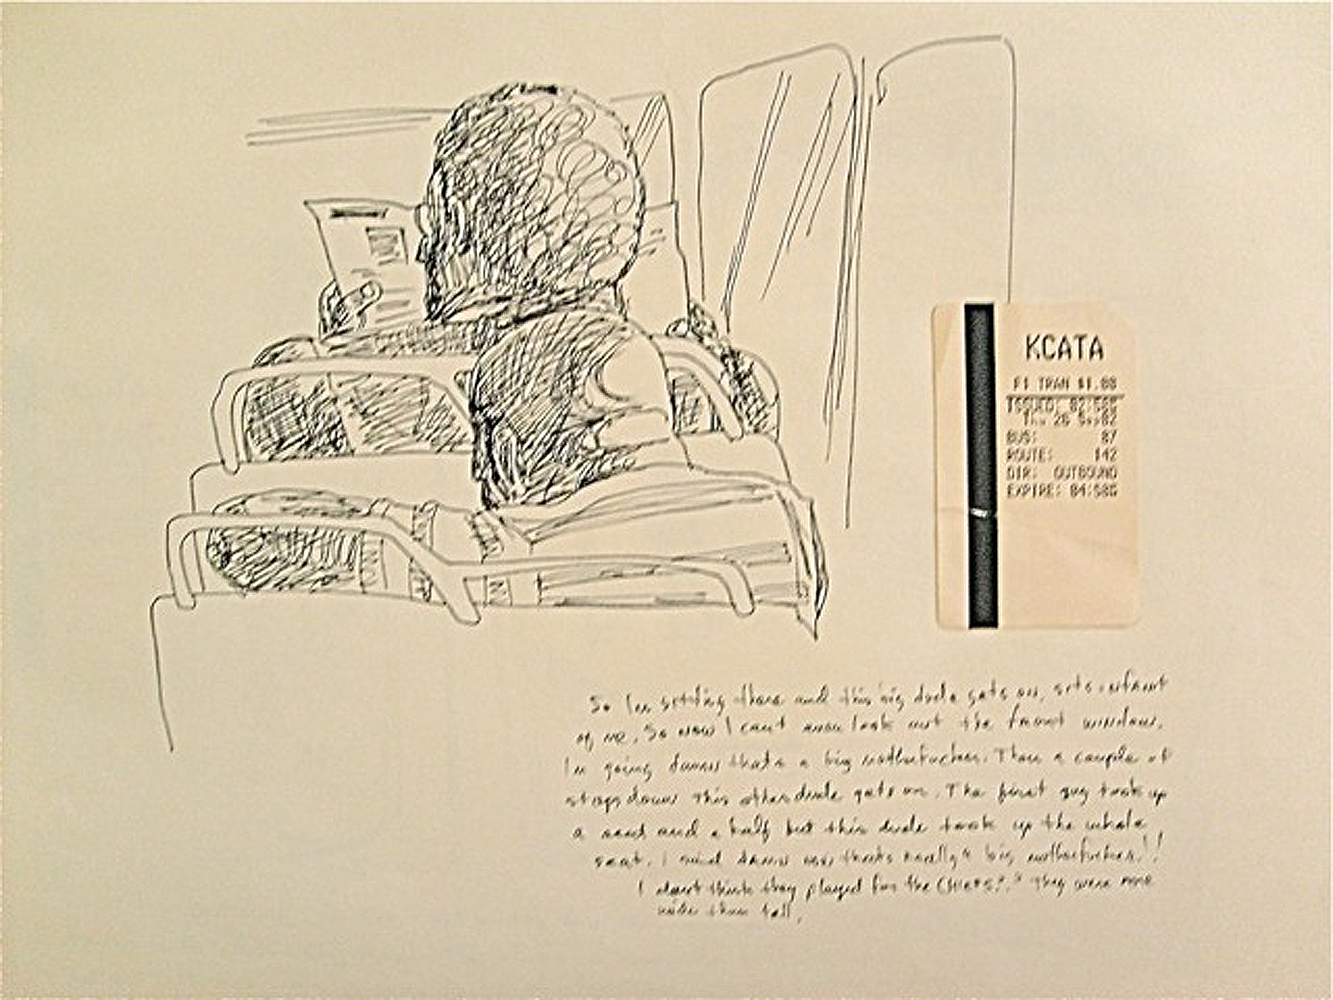 KCATA
F1 TRAN $1.00
ISSUED:
Thu 26 Sep02
BUS: 87
ROUTE: 142
DIR: OUTBOUND
EXPIRE: 04:58
So Im sitting there and this big dude gets on, sits infront
of me. So now I cant even look out the front window.
Im going damn thats a big motherfucker. Then a couple of
stops down this other dude gets on. The first guy took up
a seat and a half but this dude took up the whole
seat. I said damn now thats really a big motherfucker!!
I dont think they played for the CHIEFS?? They were more
wide than tall.